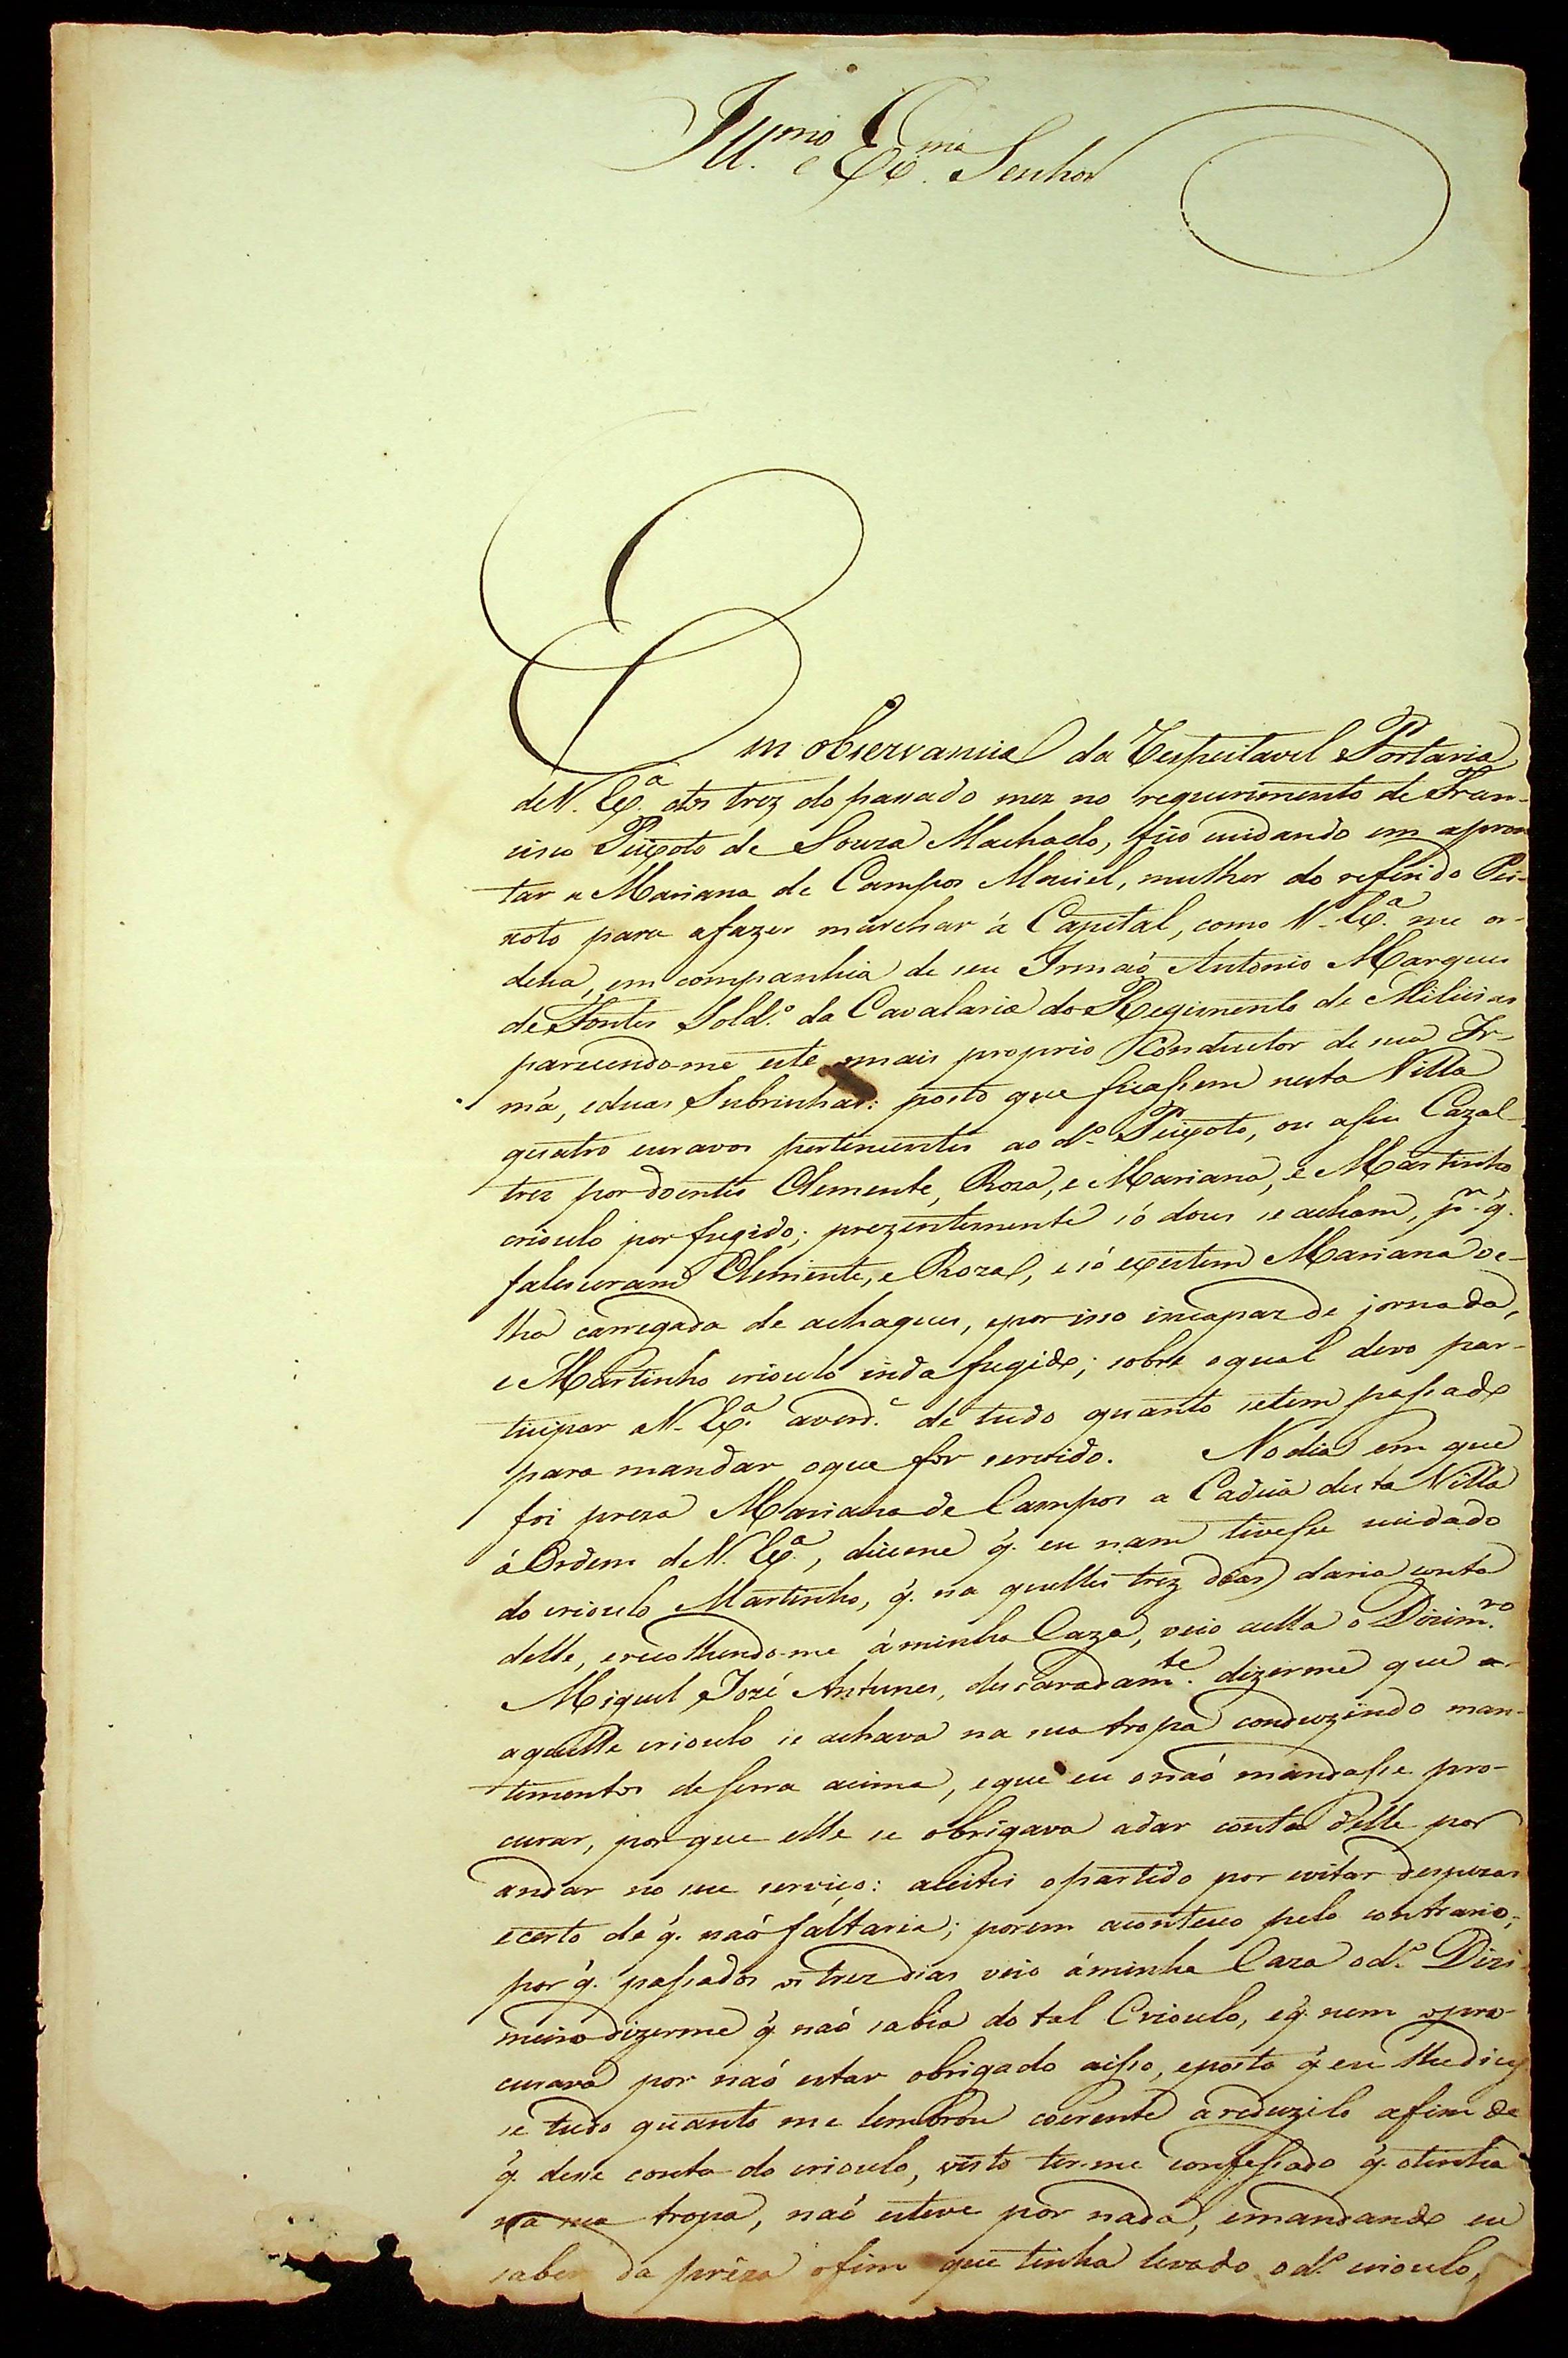 Ill.mo e Ex.mo Senhor
Em observancia da Respeitavel Portaria
de V. Ex.a dos trez do passado mez no requerimento de Fran-
cisco Peixoto de Souza Machado, fico cuidando em apron
tar a Mariana de Campos Maciel, mulher do referido Pei-
xoto para afazer marchar á Capital, como V. Ex.a me or-
dena, em companhia de seu Irmaõ Antonio Marques
de Fontes Sold.o da Cavalaria do Regimento de Milicias
parecendo-me este mais proprio Conductor de sua Ir-
mã, eduas Subrinhas: posto que ficassem nesta Villa
quatro escravos pertencentes ao d.o Peixoto, ou aseu Cazal
trez por doentes Clemente, Roza, e Mariana, e Martinho
crioulo por fugido; prezentemente só dous se acham, p.r q.
faleceram Clemente, e Roza, e só existem Mariana ve-
lha carregada de achaques, eporisso incapaz de jornada,
e Martinho crioulo inda fugido; sobre oqual devo par-
ticipar a V. Ex.a averd.e de tudo quanto setem passado
para mandar oque for servido. No dia em que
foi preza Mariana de Campos a Cadeia desta Villa
á Ordem de V. Ex.a, diceme q. eu nam tivesse cuidado
do crioulo Martinho, q. na quelles trez dias daria conta
delle, erecolhendo-me áminha Caza, veio aella o Dizim.ro
Miguel José Antunes, descaradam.te dizerme que a-
aquelle crioulo se achava na sua tropa conduzindo man-
timentos de serra acima, eque eu onaõ mandasse pro-
curar, por que elle se obrigava adar conta delle por
andar no seu serviço: aceitei opartido por evitar despezas
ecerto de q. naõ faltaria; porem aconteceo pelo contrario,
por q. passados os trez dias veio áminha Caza od.o Dizi-
meiro dizerme q. naõ sabia do tal Crioulo, eq. nem opro-
curava por naõ estar obrigado aisso, eposto q. eu lhedices
se tudo quanto me lembrou coerente areduzilo afim de
q. desse conta do crioulo, visto ter-me confessado q. otinha
na sua tropa, naõ esteve por nada, emandando eu
saber da preza ofim que tinha levado od.o crioulo,